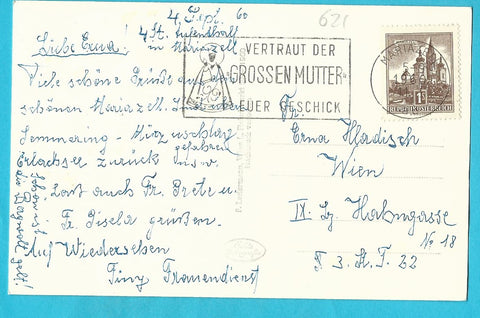 4. Sept. 60
621
Liebe Erna!
4 St. Aufenthalt
in Mariazell
Viele schöne Grüße aus dem
schönen Mariazell.
Semmering - Mürzzuschlag
gefahren
Erlaufsee zurück usw.
Laßt auch Fr. Grete u.
Fr. Gisela grüßen.
Auf Wiedersehen
Tiny Frauendienst
Schön ist
die Bergwelt gell!
VERTRAUT DER
GROSSEN MUTTER
EUER GESCHICK
MARIAZELL
REPUBLIK ÖSTERREICH
Fr.
Erna Hladisch
Wien
IX. Lg. Hahngasse
No 18
II 3. St. T. 22